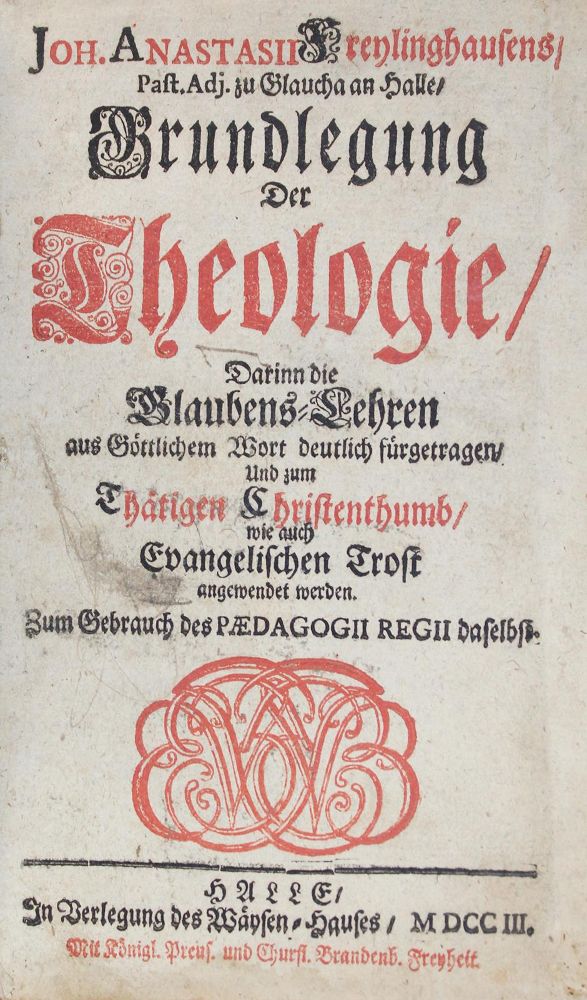 JOH. ANASTASII Freylinghausens/
Past. Adj. zu Glaucha an Halle/
Grundlegung
Der
Theologie/
Darinn die
Glaubens-Lehren
aus Göttlichem Wort deutlich fürgetragen/
Und zum
Thätigen Christenthumb/
wie auch
Evangelischen Trost
angewendet werden.
Zum Gebrauch des PÆDAGOGII REGII daselbst.
HALLE/
In Verlegung des Wäysen-Hauses/ M DCC III.
Mit Königl. Preus. und Churfl. Brandenb. Freyheit.